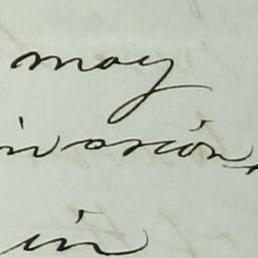 may
invasion,
in